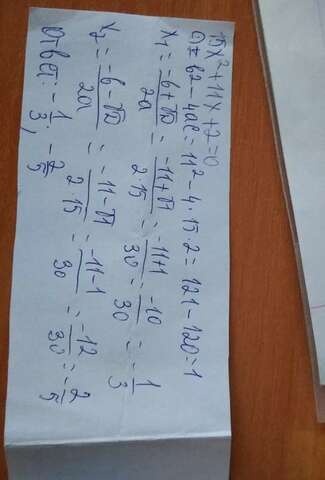 15x²+11x+2=0
D=b2-4ac=11²-4·15·2=121-120=1
x1=(-b+√D)/2a=(-11+√1)/2·15=(-11+1)/30=-10/30=-1/3
x2=(-b-√D)/2a=(-11-√1)/2·15=(-11-1)/30=-12/30=-2/5
Ответ: -1/3; -2/5